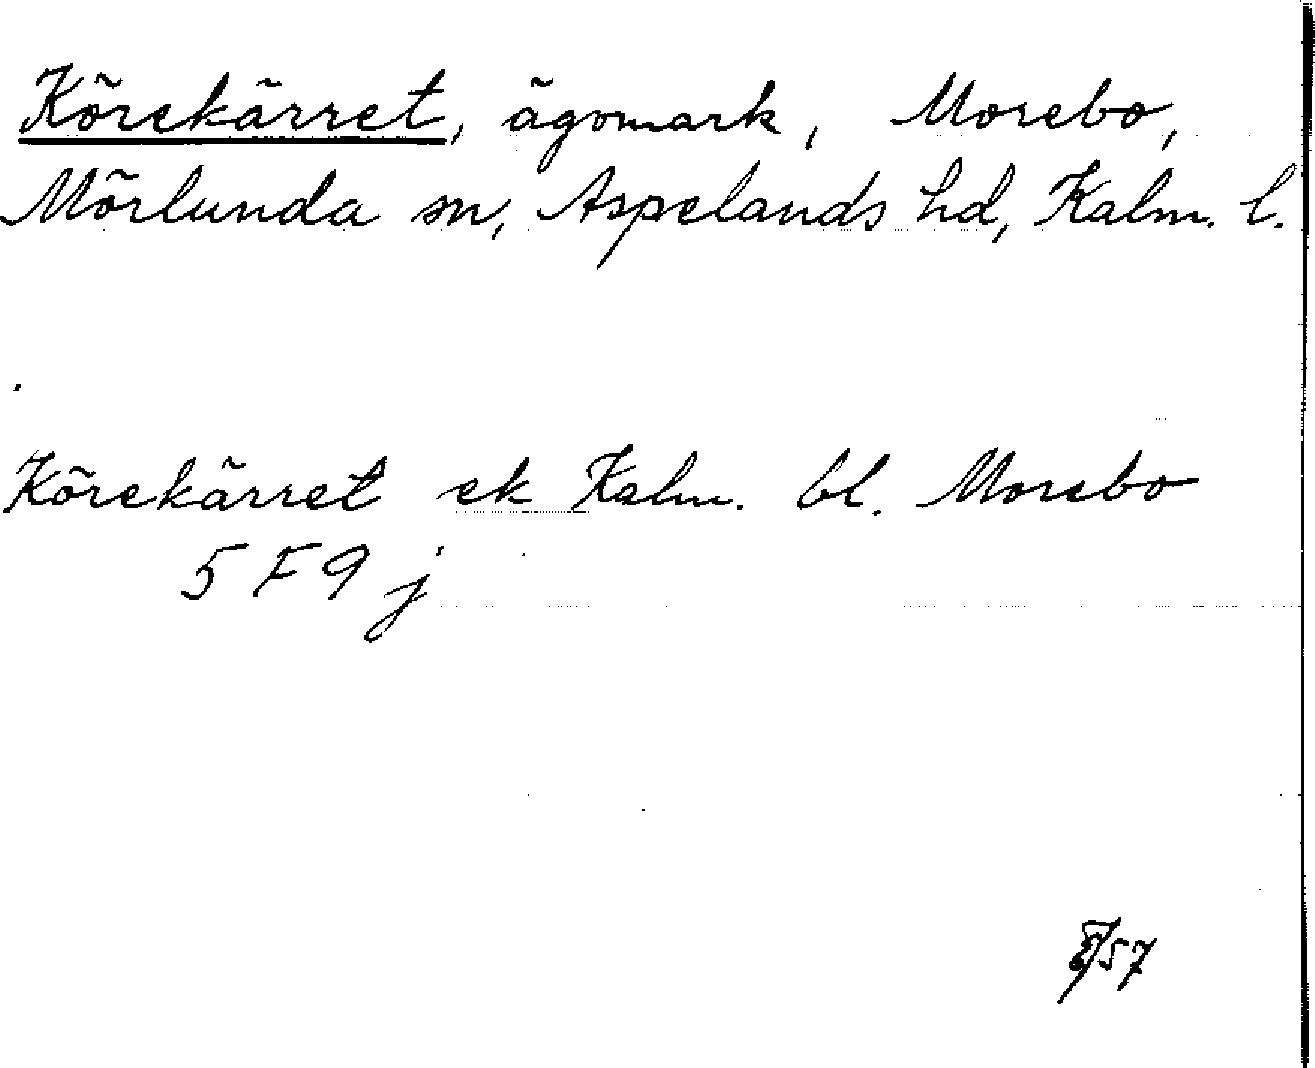 Körekärret, ägomark, Morebo,
Mörlunda sn, Aspelands hd, Kalm. l.
Körekärret ek Kalm. bl. Morebo
5 F 9 j
57